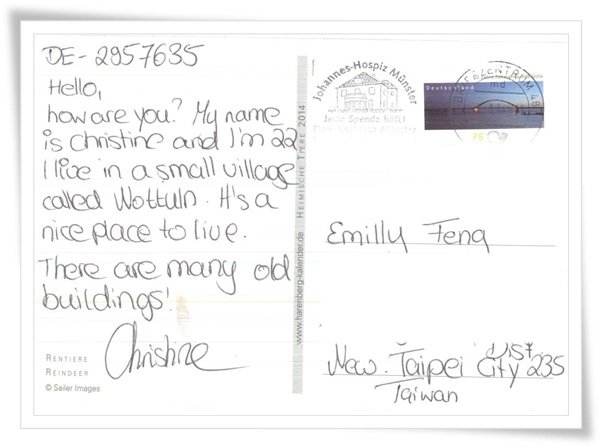 DE-2957635
Hello,
how are you? My name
is Christine and I'm 22
I live in a small village
called Nottuln. It's a
nice place to live.
There are many old
buildings!
Christine
RENTIERE
REINDEER
© Sailer Images
www.harenberg-kalender.de HEIMISCHE TIERE 2014
Johannes-Hospiz Münster
Jede Spende hilft
Deutschland
ZENTRUM 48
75
Emilly Feng
New Taipei City 235
Taiwan